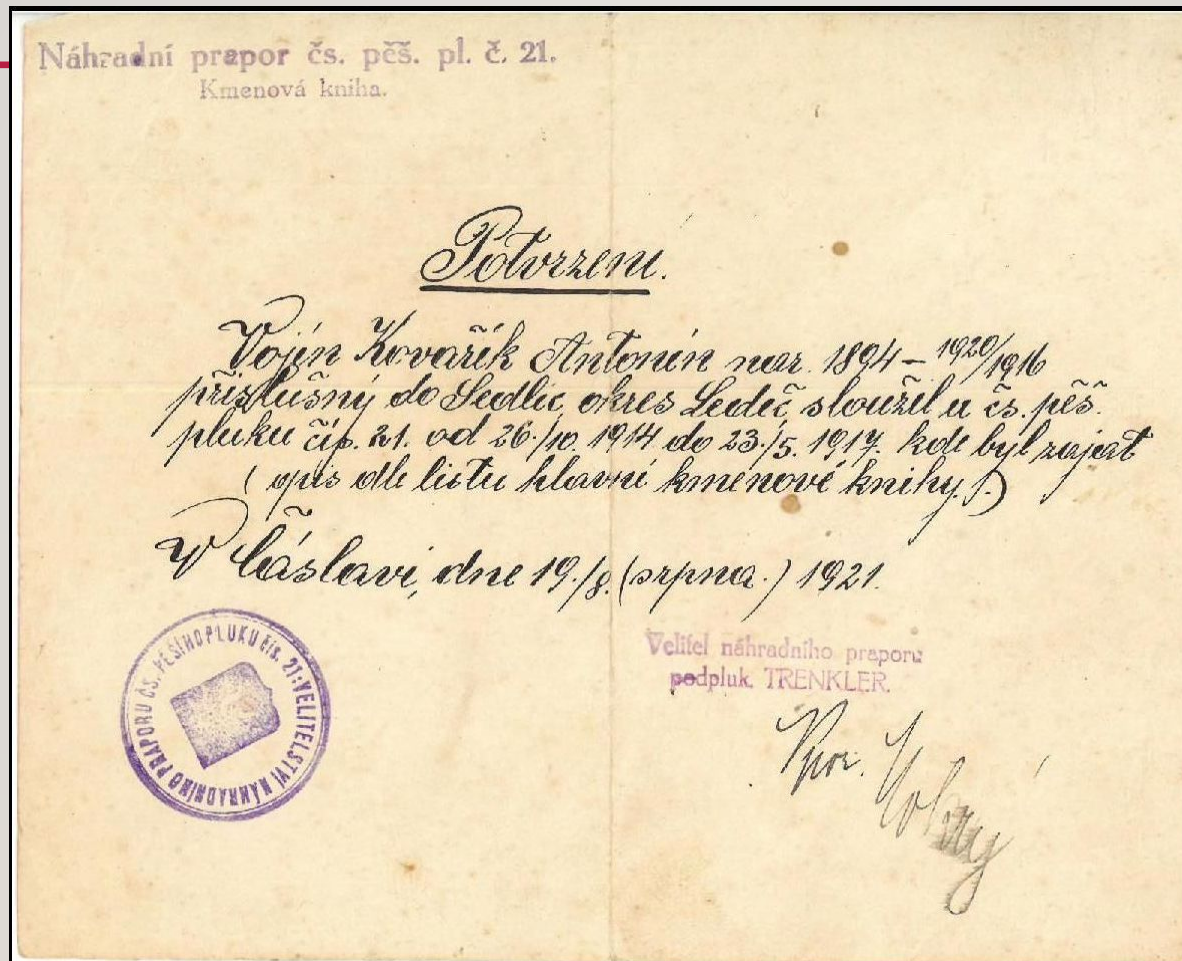 Náhradní prapor čs. pěš. pl. č. 21.
Kmenová kniha.
Potvrzení.
Vojín Kovařík Antonín nar. 1894 – 1920/1916
příslušný do Sedlic, okres Ledeč, sloužil u čs. pěš.
pluku čís. 21. od 26./10. 1914 do 23./5. 1917. kde byl zajat
( opis dle listu hlavní kmenové knihy. )
V Čáslavi, dne 19./8. (srpna.) 1921.
VELITELSTVÍ NÁHRADNÍHO PRAPORU ČS. PĚŠÍHO PLUKU čís. 21:
Velitel náhradního praporu
podpluk. TRENKLER.